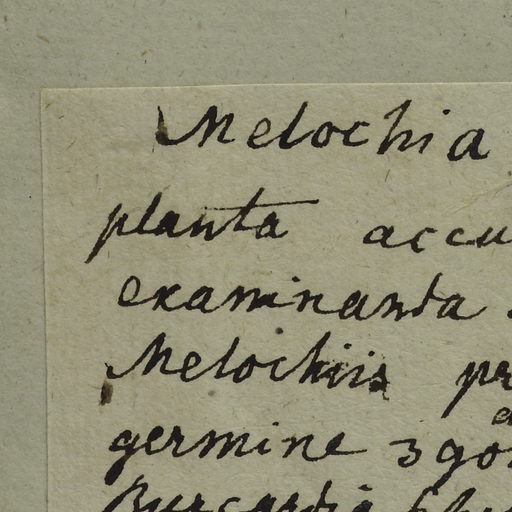 Melochia
planta accu
examinanda .
Melochiis pr
germine 3gon
Burcardia